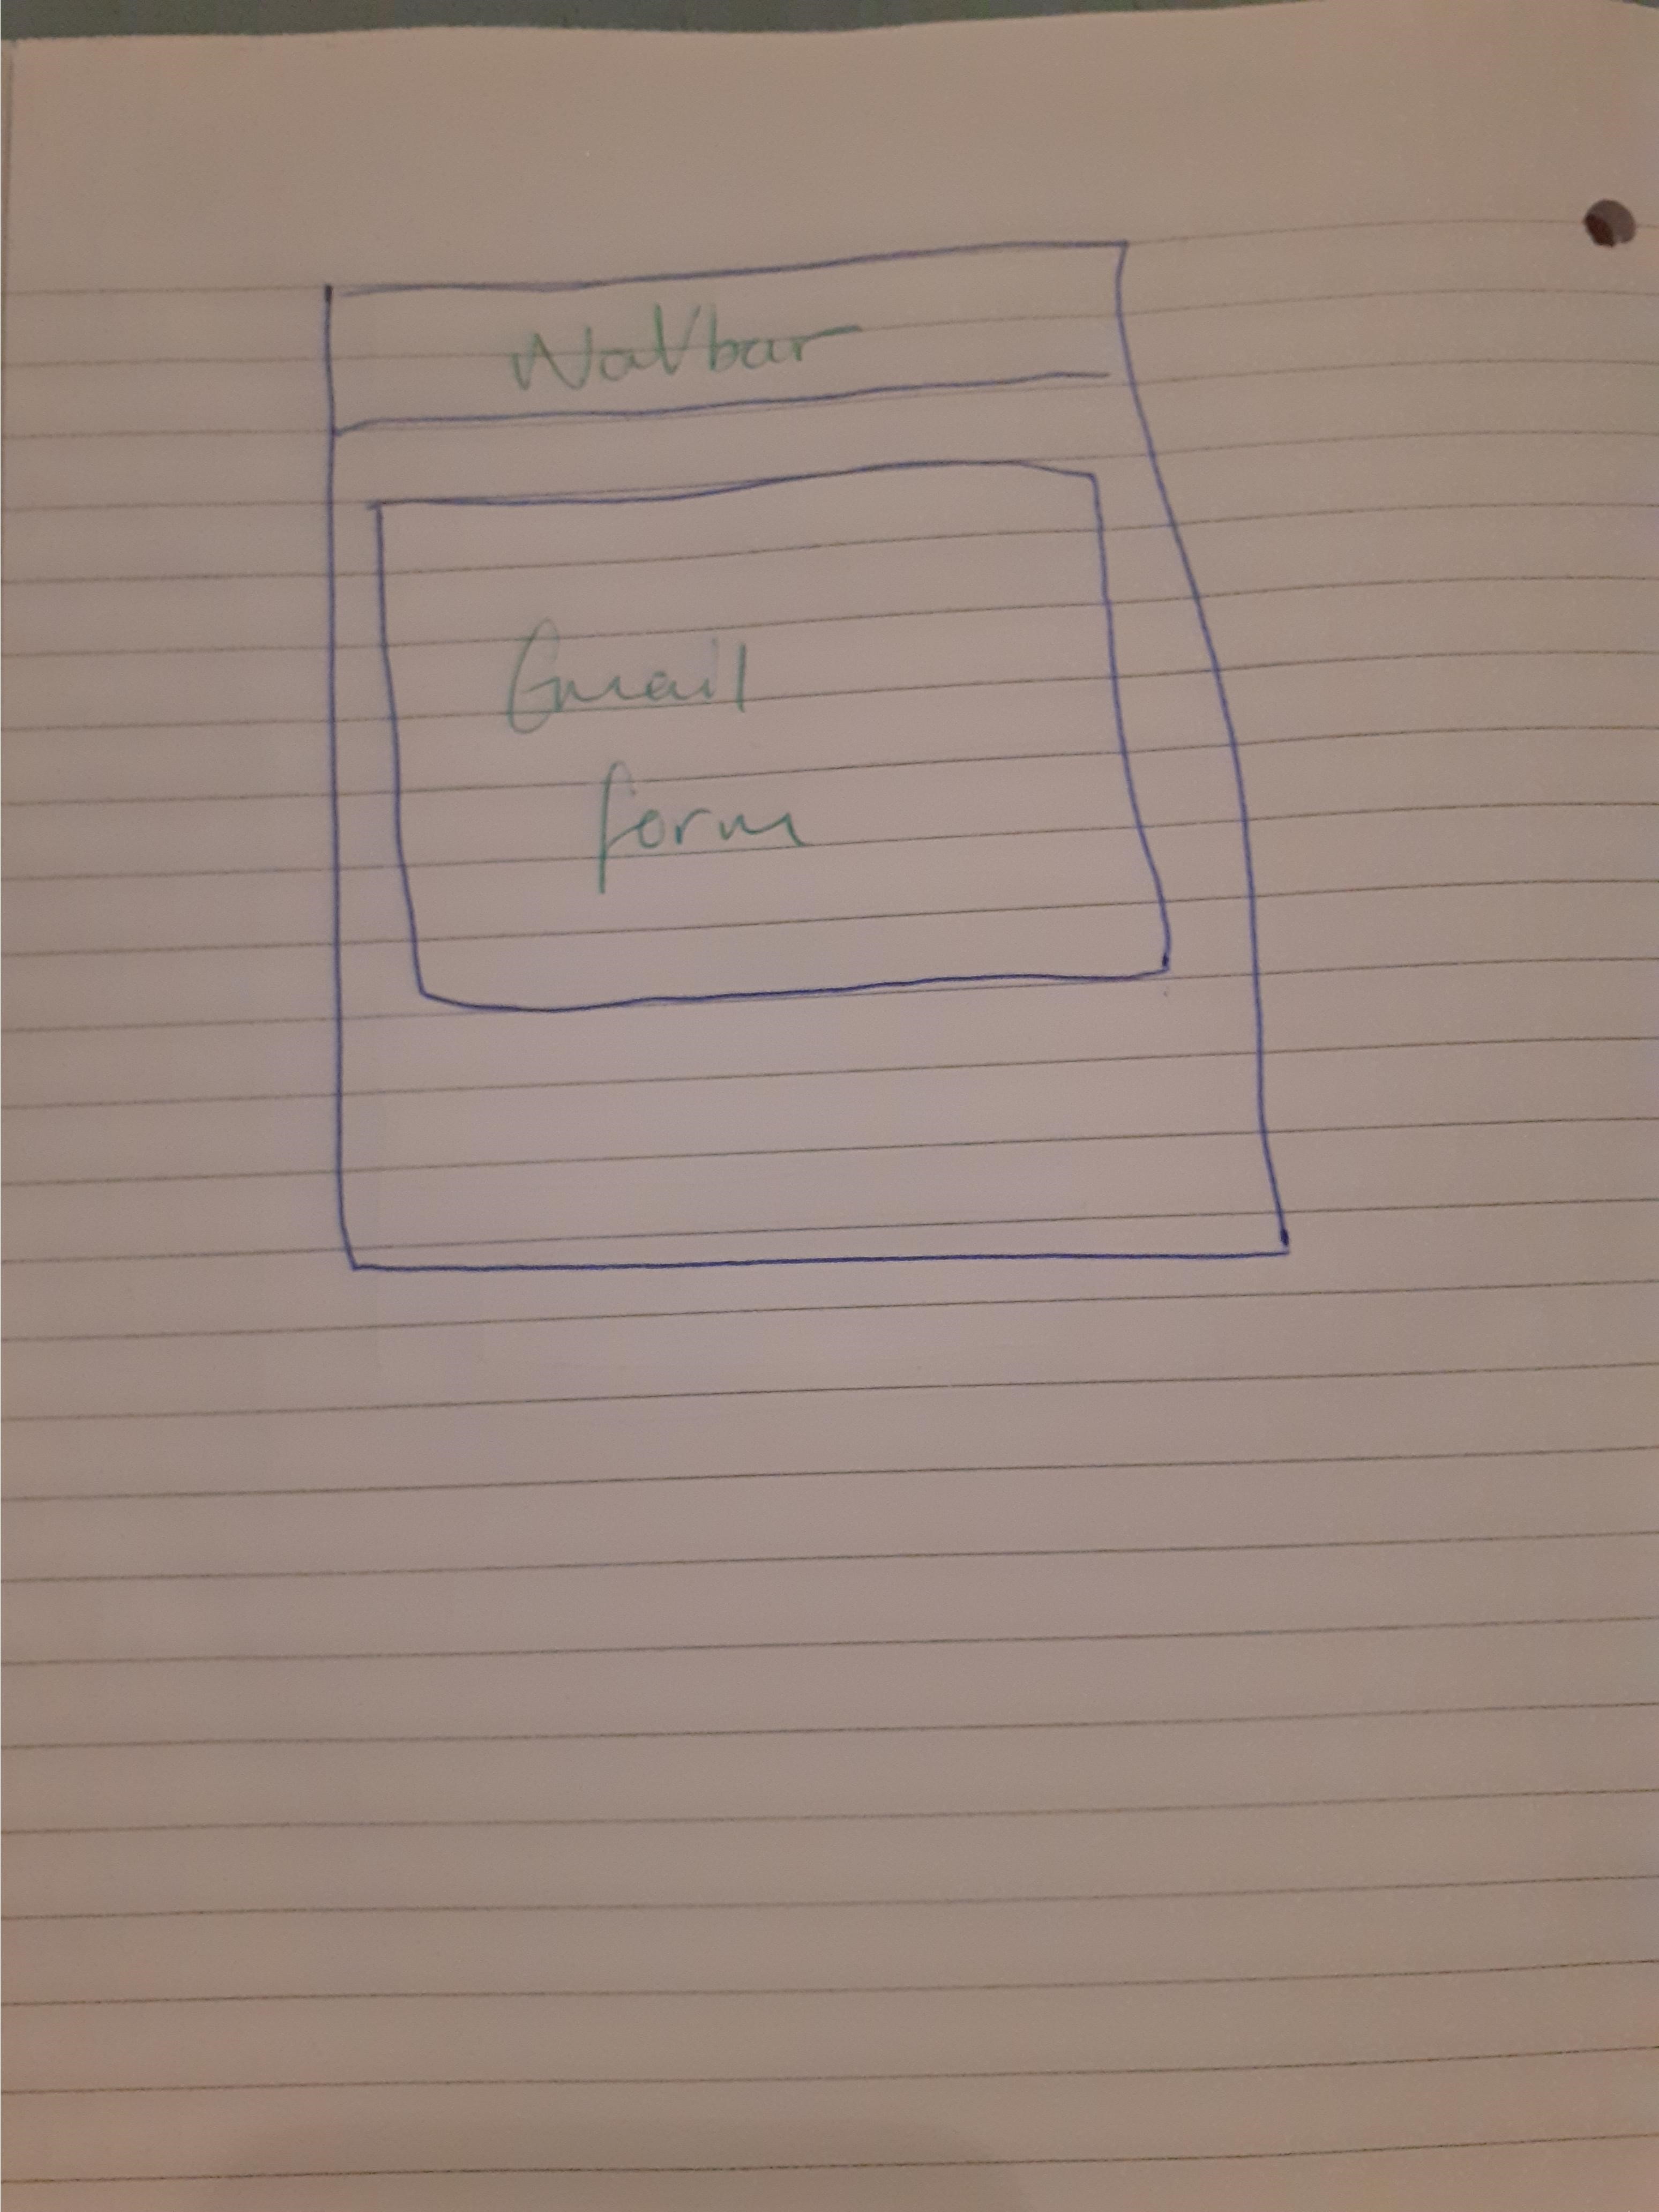 Navbar
Gmail
form